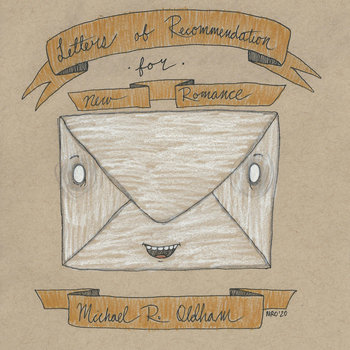 Letters of Recommendation
· for ·
New Romance
Michael R. Oldham
MRO '20